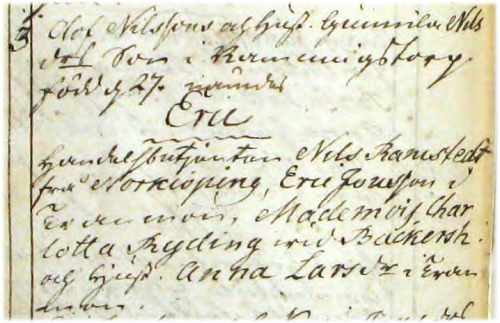 3
Olof Nilssons och Hust. Gunnila Nils
drs Son i Rammingstorp.
född d 27. ejusdem
Eric
Handelsbetjenten Nils Ramstedt
frå Norkiöping, Eric Jonsson i
Eranmon, Mademois. Char
lotta Ryding wid Bäckersh.
och Hust. Anna Larsdr i Eran
mon.